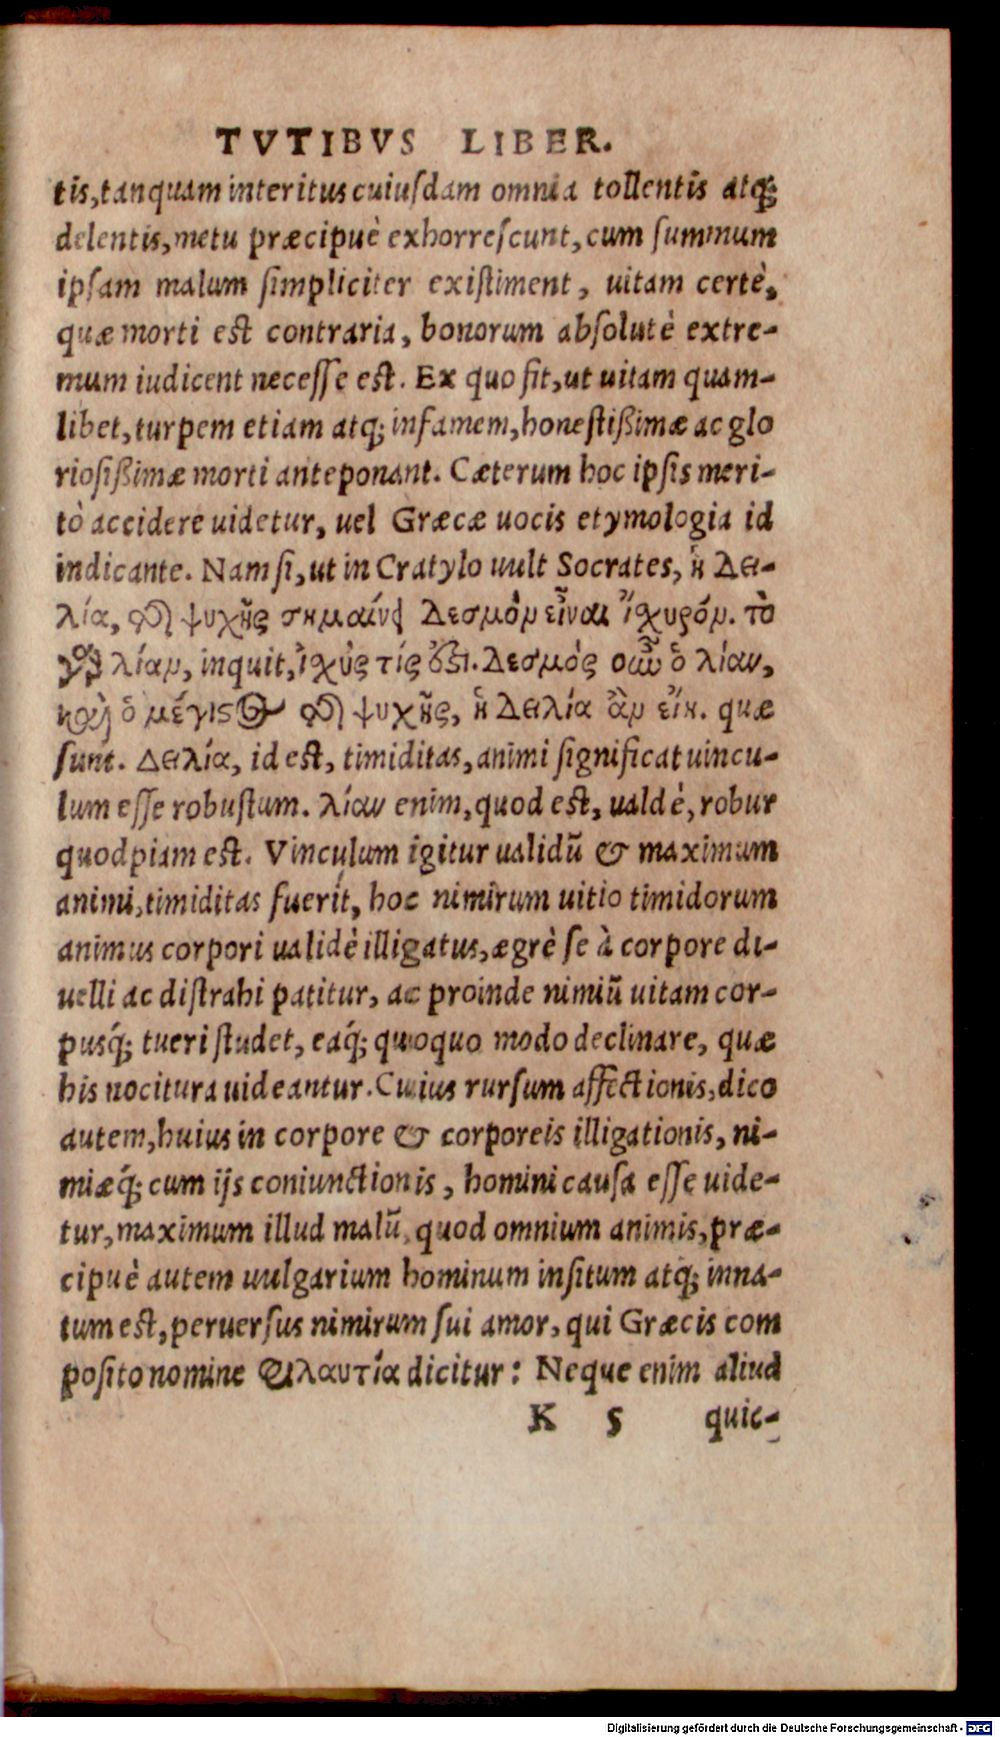 TVTIBVS LIBER.
tis, tanquam interitus cuiusdam omnia tollentis atq;
delentis, metu præcipuè exhorrescunt, cum summum
ipsam malum simpliciter existiment, uitam certè,
quæ morti est contraria, bonorum absolutè extre-
mum iudicent necesse est. Ex quo fit, ut uitam quam-
libet, turpem etiam atq; infamem, honestißimæ ac glo
riosißimæ morti anteponant. Cæterum hoc ipsis meri-
tò accidere uidetur, uel Græcæ uocis etymologia id
indicante. Nam si, ut in Cratylo uult Socrates, ἡ δει-
λία, τῆ ψυχῆς σημαίνει δεσμὸν εἶναι ἰσχυρόν. τὸ
γὰρ λίαν, inquit, ἰσχύς τίς ὅστι. δεσμὸς οὖν ὁ λίαν,
καὶ ὁ μέγιστος τῆ ψυχῆς, ἡ δειλία ἂν εἴη. quæ
sunt. δειλία, id est, timiditas, animi significat uincu-
lum esse robustum. λίαν enim, quod est, ualdè, robur
quodpiam est. Vinculum igitur ualidũ & maximum
animi, timiditas fuerit, hoc nimirum uitio timidorum
animus corpori ualidè illigatus, ægrè se à corpore di-
uelli ac distrahi patitur, ac proinde nimiũ uitam cor-
pusq́; tueri studet, eaq́; quoquo modo declinare, quæ
his nocitura uideantur. Cuius rursum affectionis, dico
autem, huius in corpore & corporeis illigationis, ni-
miæq́; cum ijs coniunctionis, homini causa esse uide-
tur, maximum illud malũ, quod omnium animis, præ-
cipuè autem uulgarium hominum insitum atq; inna-
tum est, peruersus nimirum sui amor, qui Græcis com
posito nomine φιλαυτία dicitur: Neque enim aliud
K 5 quic-
Digitalisierung gefördert durch die Deutsche Forschungsgemeinschaft - DFG